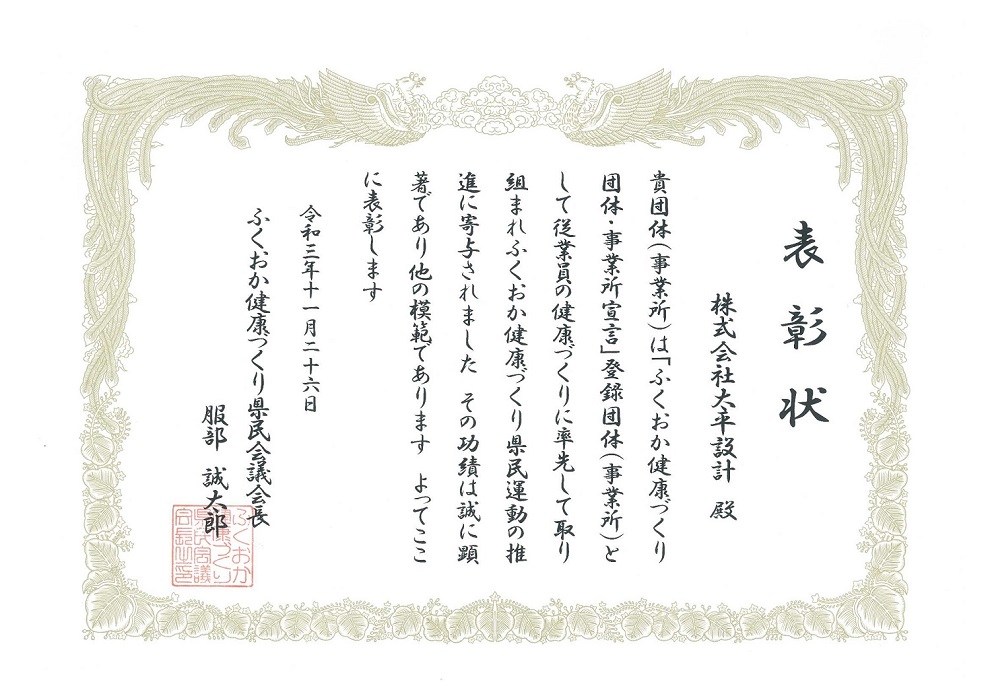 表彰状
株式会社大平設計 殿
貴団体(事業所)は「ふくおか健康づくり
団体・事業所宣言」登録団体(事業所)と
して従業員の健康づくりに率先して取り
組まれふくおか健康づくり県民運動の推
進に寄与されました その功績は誠に顕
著であり他の模範であります よってここ
に表彰します
令和三年十一月二十六日
ふくおか健康づくり県民会議会長
服部 誠太郎
ふくおか
健康づくり
県民会議
会長之印